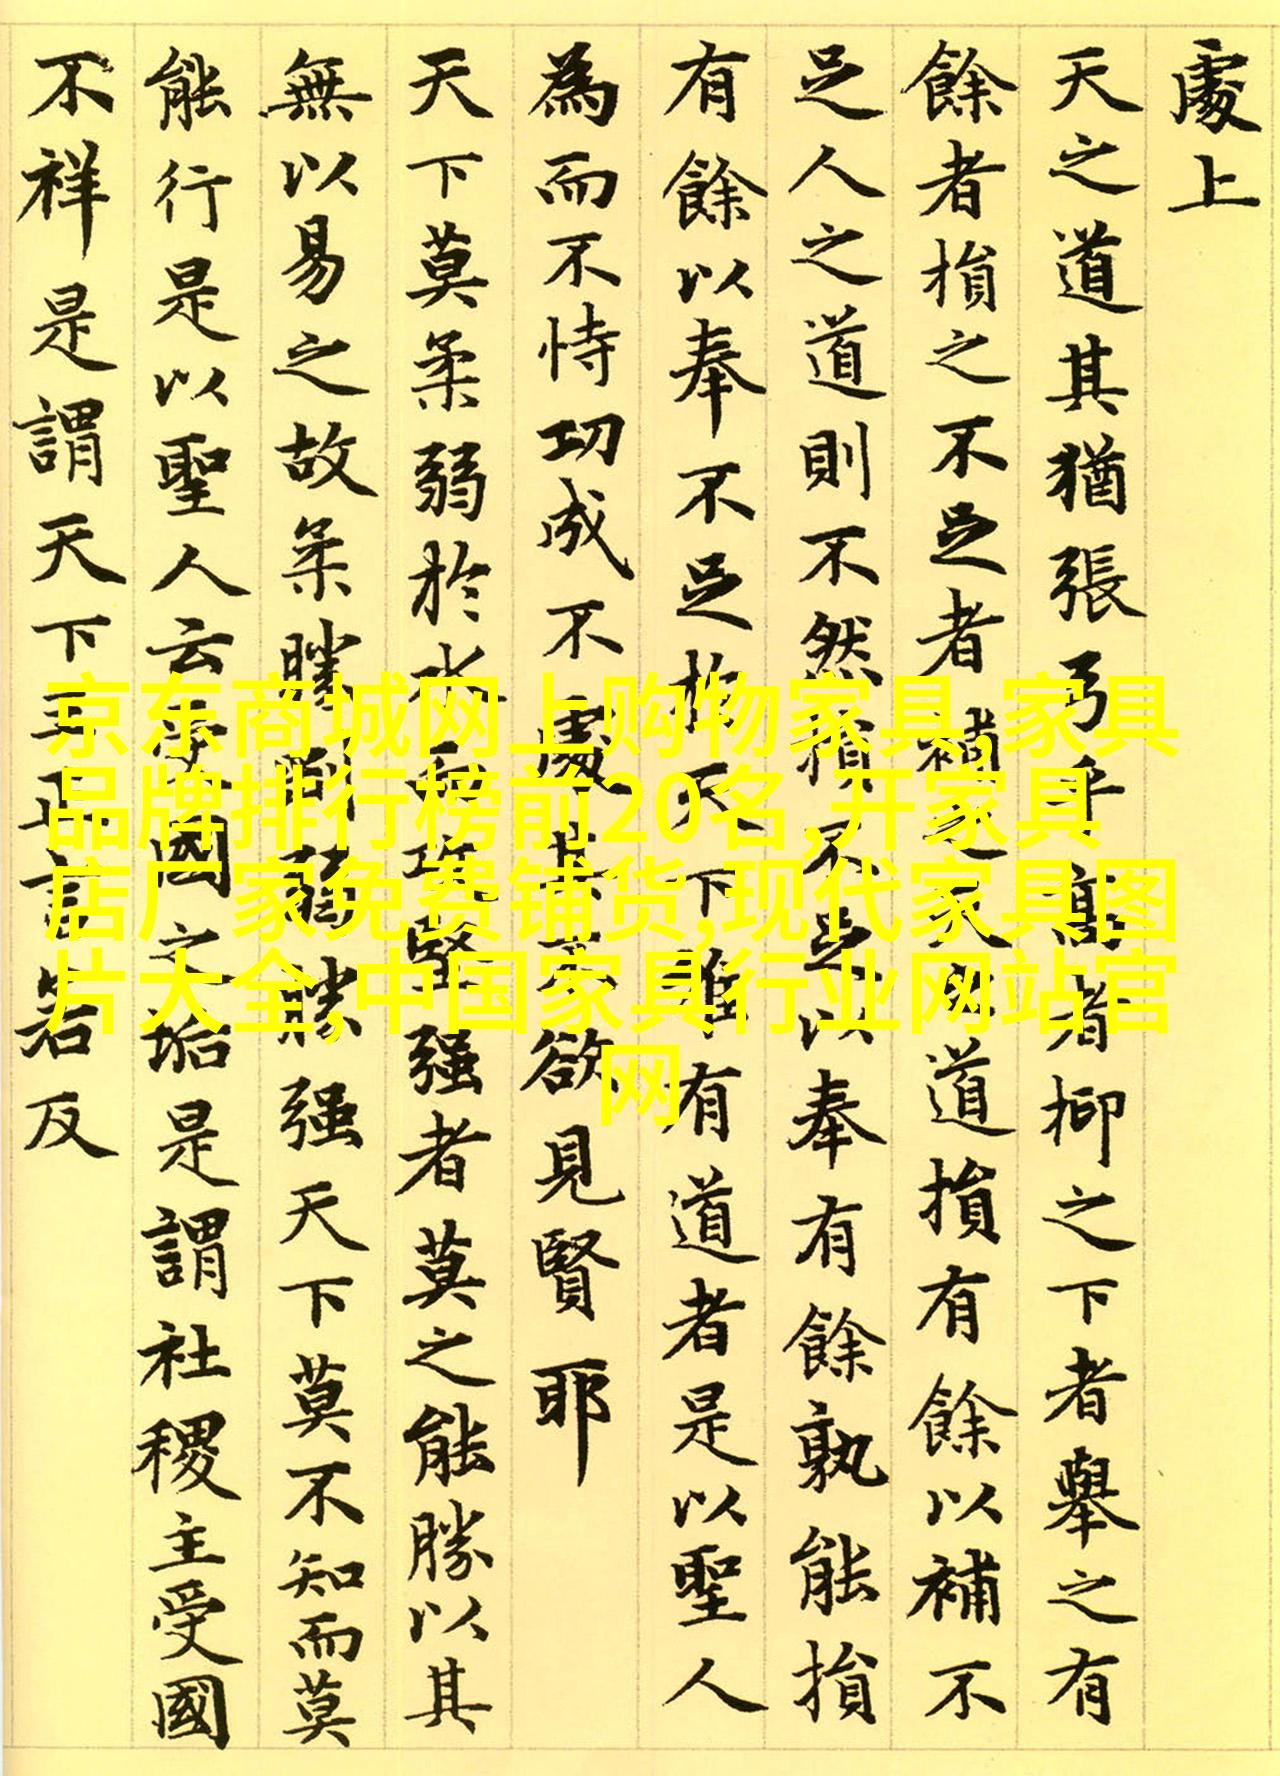 處上
天之道其猶張弓乎高者抑之下者舉之有
餘者損之不足者補之天之道損有餘以補不
足人之道則不然損不足以奉有餘孰能損
有餘以奉不足於天下唯有道者是以聖人
為而不恃功成不處其不欲見賢耶
天下莫柔弱於水而攻堅强者莫之能勝以其
無以易之故柔勝剛弱勝强天下莫不知而莫
能行是以聖人云受國之垢是謂社稷主受國
不祥是謂天下王正言若反
京东商城网上购物家具,家具
品牌排行榜前20名,开家具
店厂家免费铺货,现代家具图
片大全,中国家具行业网站官
网